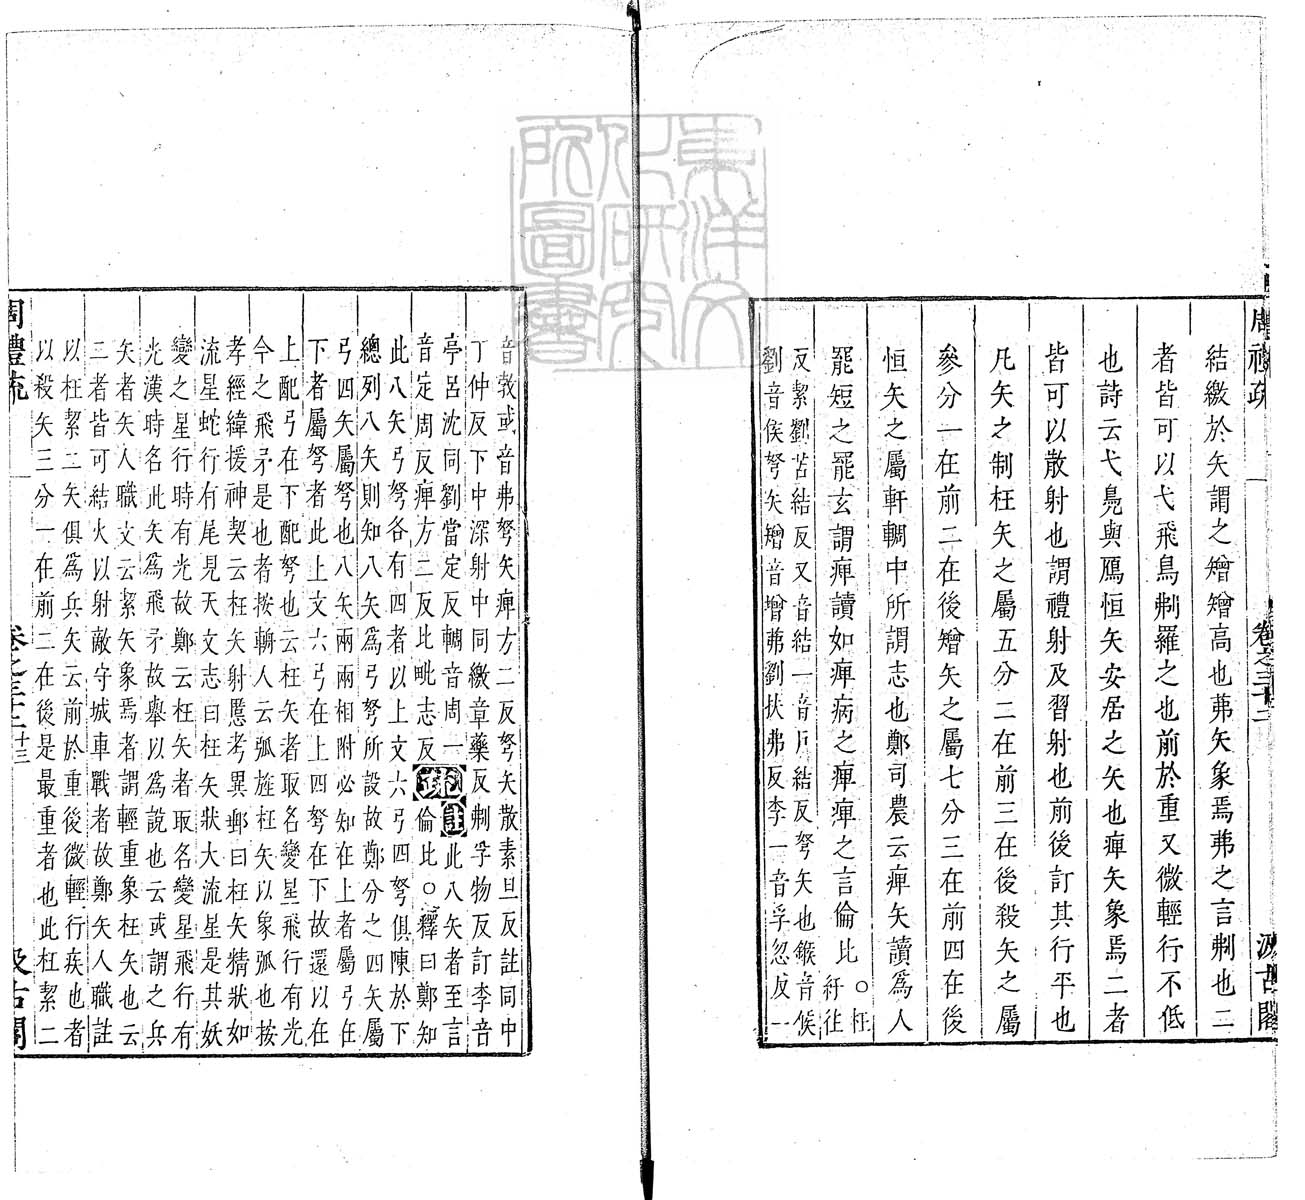 周禮疏
卷之三十二
汲古閣
結繳於矢謂之矰矰高也茀矢象焉茀之言刜也二
者皆可以弋飛鳥刜羅之也前於重又微輕行不低
也詩云弋鳧與鴈恒矢安居之矢也痺矢象焉二者
皆可以散射也謂禮射及習射也前後訂其行平也
凡矢之制枉矢之屬五分二在前三在後殺矢之屬
參分一在前二在後矰矢之屬七分三在前四在後
恒矢之屬軒輖中所謂志也鄭司農云痺矢讀爲人
罷短之罷玄謂痺讀如痺病之痺痺之言倫比○枉紆往
反絜劉苦結反又音結一音戶結反弩矢也鍭音候
劉音侯弩矢矰音增茀劉扶弗反李一音孚忽反一
音敦或音弗弩矢痺方二反弩矢散素旦反註同中
丁仲反下中深射中同繳章藥反刜孚物反訂李音
亭呂沈同劉當定反輖音周一
音定周反痺方二反比毗志反疏註此八矢者至言倫比○釋曰鄭知
此八矢弓弩各有四者以上文六弓四弩俱陳於下
總列八矢則知八矢爲弓弩所設故鄭分之四矢屬
弓四矢屬弩也八矢兩兩相附必知在上者屬弓在
下者屬弩者此上文六弓在上四弩在下故還以在
上配弓在下配弩也云枉矢者取名變星飛行有光
今之飛矛是也者按輈人云弧旌枉矢以象弧也按
孝經緯援神契云枉矢射慝考異郵曰枉矢精狀如
流星蛇行有尾見天文志曰枉矢狀大流星是其妖
變之星行時有光故鄭云枉矢者取名變星飛行有
光漢時名此矢爲飛矛故舉以爲說也云或謂之兵
矢者矢人職文云絜矢象焉者謂輕重象枉矢也云
二者皆可結火以射敵守城車戰者故鄭矢人職註
以枉絜二矢俱爲兵矢云前於重後微輕行疾也者
以殺矢三分一在前二在後是最重者也此枉絜二
周禮疏
卷之三十二
十三
汲古閣
東洋文化研究所圖書